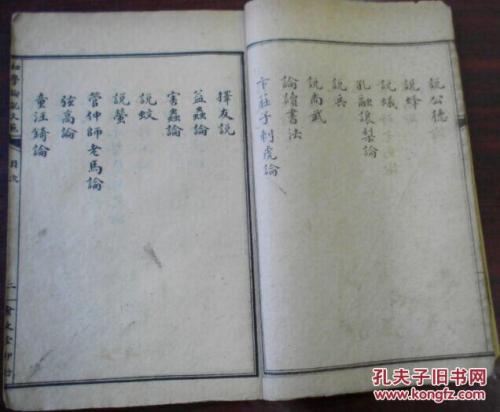 說公德
說蜂
說蟻
孔融讓棃論
說兵
說尚武
論讀書法
卞莊子刺虎論
擇友說
益蟲論
害蟲論
說蚊
說螢
管仲師老馬論
弦高論
童汪錡論
目次
二
孔夫子旧书网
www.kongfz.com